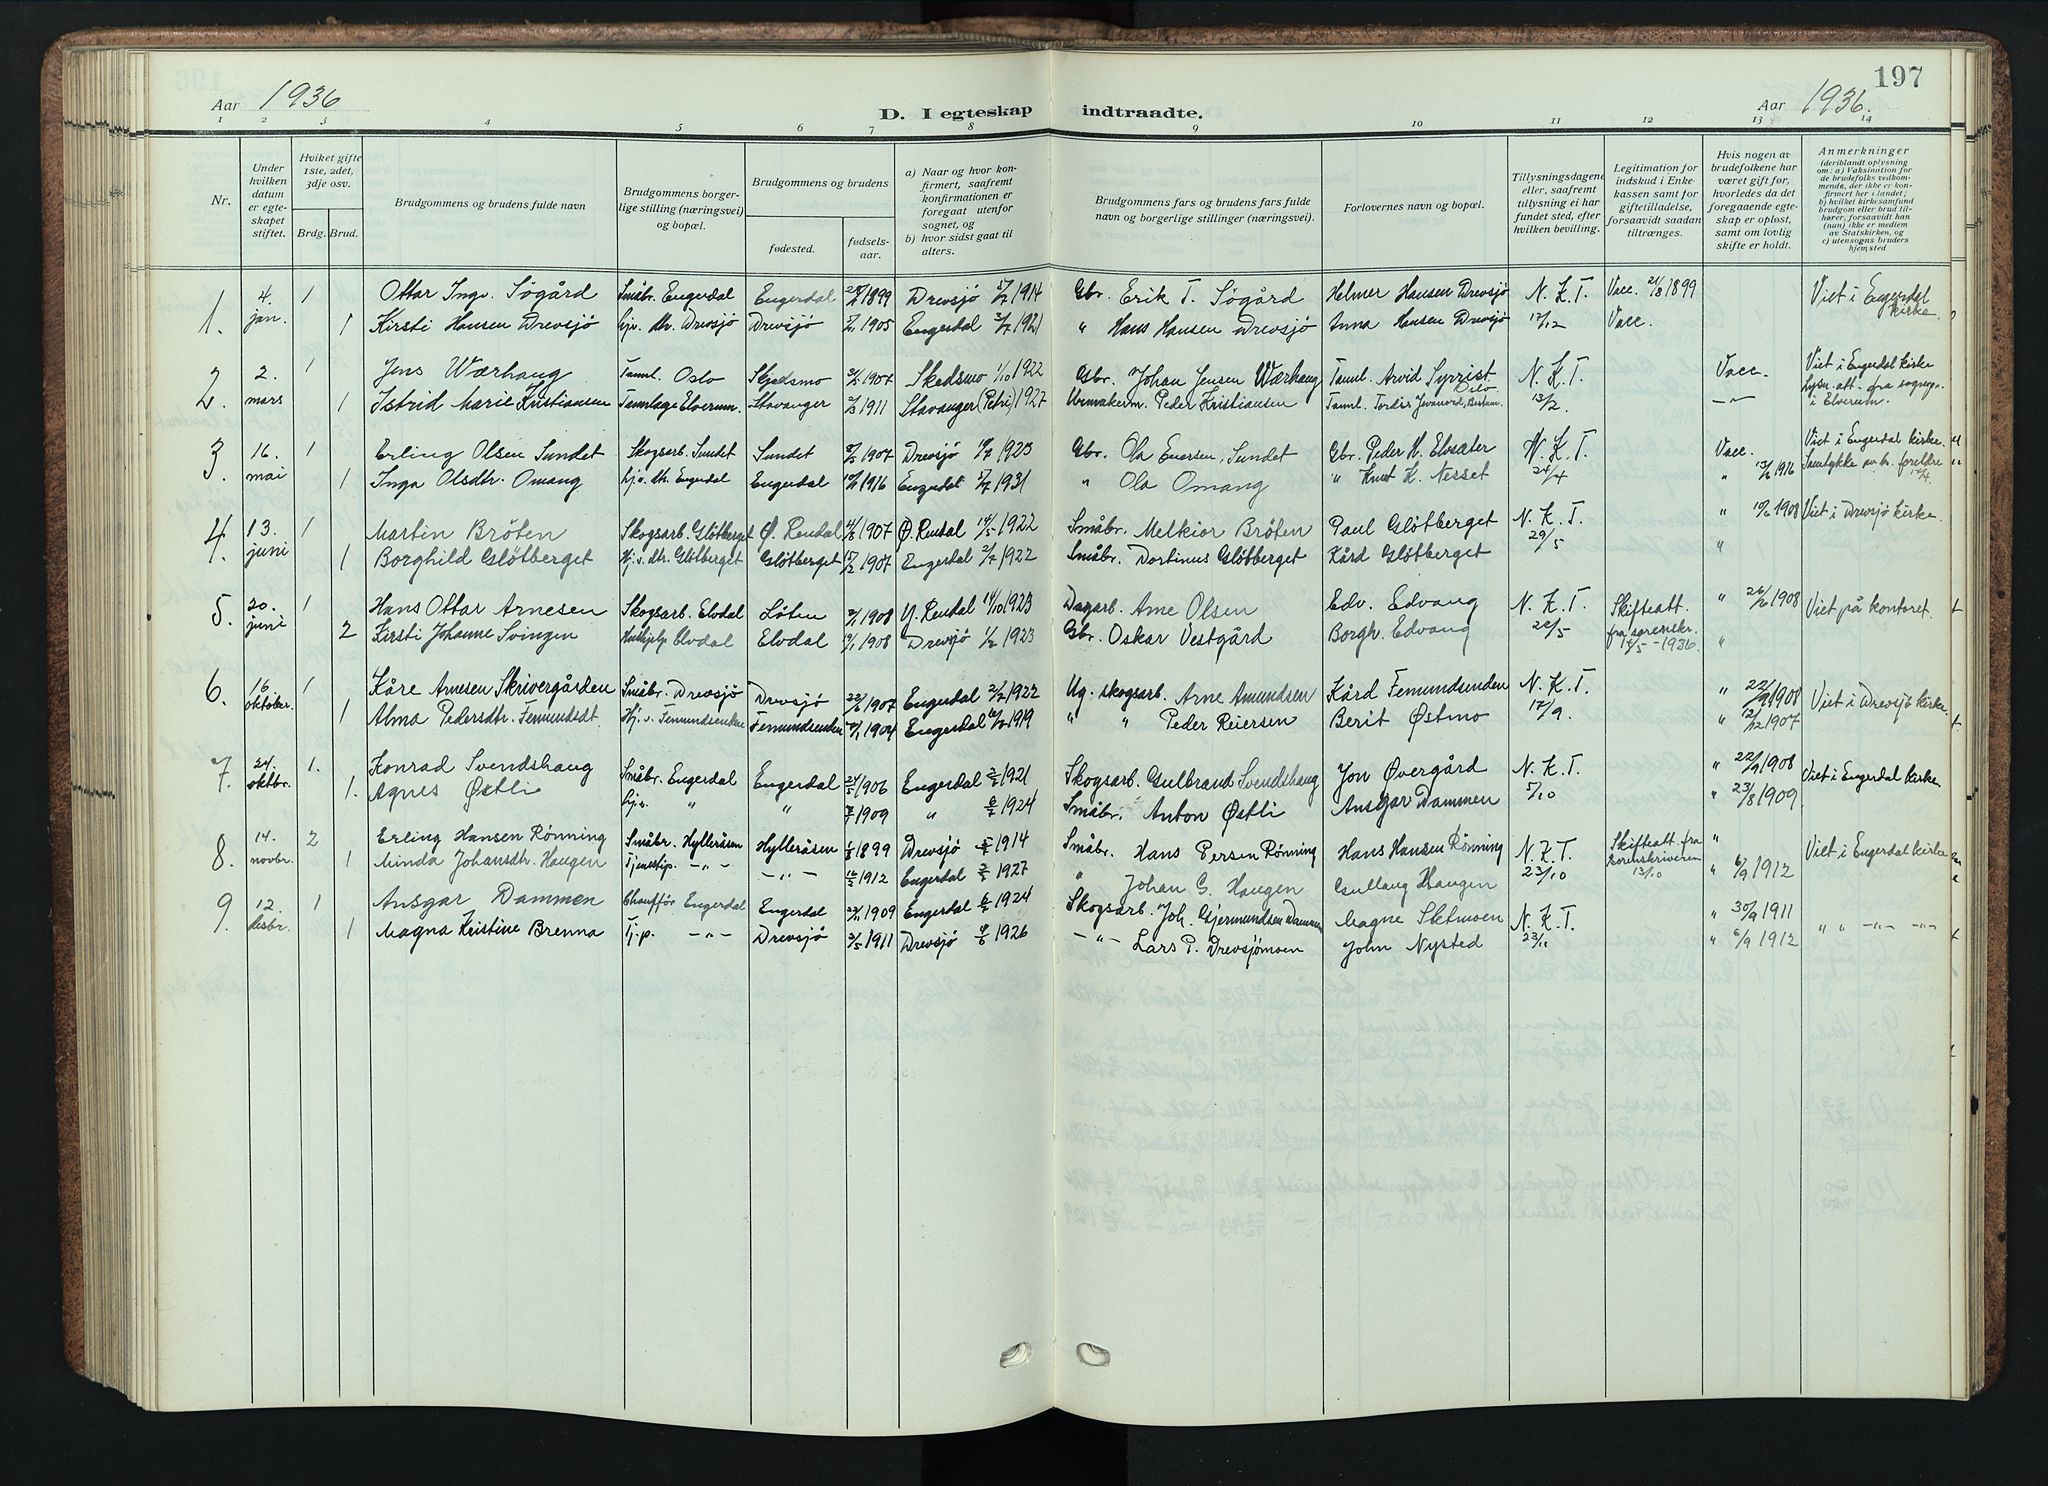 197
Aar 1936
D. I egteskap indtraadte.
Aar 1936.
1 2 3 4 5 6 7 8 9 10 11 12 13 14
Nr.
Under hvilken datum er egteskapet stiftet.
Hviket gifte 1ste, 2det, 3dje osv.
Brdg. Brud.
Brudgommens og brudens fulde navn
Brudgommens borgerlige stilling (næringsvei) og bopæl.
Brudgommens og brudens
fødested.
fødselsaar.
a) Naar og hvor konfirmert, saafremt konfirmationen er foregaat utenfor sognet, og
b) hvor sidst gaat til alters.
Brudgommens fars og brudens fars fulde navn og borgerlige stillinger (næringsvei).
Forlovernes navn og bopæl.
Tillysningsdagene eller, saafremt tillysning ei har fundet sted, efter hvilken bevilling.
Legitimation for indskud i Enkekassen samt for giftetilladelse, forsaavidt saadan tiltrænges.
Hvis nogen av brudefolkene har været gift før, hvorledes da det foregaaende egteskap er opløst, samt om lovlig skifte er holdt.
Anmerkninger (deriblandt oplysning om: a) Vaksination for de brudefolks vedkommende, der ikke er konfirmert her i landet; b) hvilket kirkesamfund brudgom eller brud tilhører, forsaavidt han (hun) ikke er medlem av Statskirken, og c) utensogns bruders hjemsted
1. 4. jan. 1 Ottar Ingv. Sögård Småbr. Engerdal Engerdal 1899 Drevsjö 1914 Gbr. Erik T. Sögård Helmer Hansen Drevsjö N. K. T. Vacc. 1899 Viet i Engerdal kirke.
1 Kirsti Hansen Drevsjö Drevsjö Drevsjö 1905 Engerdal 1921 " Hans Hansen Drevsjö Anna Hansen Drevsjö 17/12 Vacc.
2. 2. mars 1 Jens Wærhaug Tannl. Oslo Skjedsmo 1907 Skedsmo 1/10 1922 Gbr. Johan Jensen Wærhaug Tannl. Arvid Syrrist Oslo N. K. T. Vacc. Viet i Engerdal kirke
1 Istrid Marie Kristiansen Tannlæge Elverum Stavanger 1911 Stavanger (Petri) 1927 Urmakerm. Peder Kristiansen Tannl. Tordis 13/2. —"— Lysn. att. fra sognepr. i Elverum.
3. 16. mai 1 Erling Olsen Sundet Skogsarb. Sundet Sundet 1907 Drevsjö 1923 Gbr. Ola Enersen Sundet Gbr. Peder H. Elvsæter N. K. T. Vacc. Viet i Engerdal kirke.
1 Inga Olsdtr. Omang Engerdal Engerdal 1916 Engerdal 1931 " Ola Omang " Knut K. Nesset 24/4 " 13/6 1916 Samtykke av br. foreldre
4. 13. juni 1 Martin Bröten Skogsarb. Glötberget Ø. Rendal 1907 Ø. Rendal 14/5 1922 Småbr. Melkior Bröten Paul Glötberget N. K. T. " 1908 Viet i Drevsjö kirke.
1 Borghild Glötberget Hj. v. dtr. Glötberget Glötberget 1907 Engerdal 2/7 1922 Småbr. Dortinus Glötberget Kård Glötberget 29/5 "
5. 20. juni 1 Hans Ottar Arnesen Skogsarb. Elvdal Löten 1908 Y. Rendal 14/10 1923 Dagarb. Arne Olsen Edv. Edvang N. K. T. Skifteatt. " 26/6 1908 Viet på kontoret.
2 Kirsti Johanne Svingen Elvdal Elvdal 1908 Drevsjö 1923 Gbr. Oskar Vestgård Borgh. Edvang fra sorenskr. 14/5 - 1936. "
6. 16 oktober. 1 Kåre Arnesen Skrivergården Småbr. Drevsjö Drevsjö 22/6 1907 Engerdal 2/7 1922 Ug. skogsarb. Arne Amundsen Kård Femundsenden N. K. T. " 22/9 1908 Viet i Drevsjö kirke
1 Alma Pedersdtr. Femundsdt. Hj. v. Femundsenden Femundsenden 1904 Engerdal 1919 " " Peder Reiersen Berit Østmo 17/9. " 12/12 1907
7. 24. oktbr. 1. Konrad Svendshaug Småbr. Engerdal Engerdal 1906 Engerdal 1921 Skogsarb. Gulbrand Svendshaug Jon Övergård N. K. T. " 22/9 1908 Viet i Engerdal kirke
1. Agnes Östli " " 1909 " 1924 Småbr. Anton Östli Ansgar Dammen 5/10 " 23/8 1909
8. 14. novbr. 2 Erling Hansen Rönning Småbr. Hylleråsen Hylleråsen 1899 Drevsjö 1914 Småbr. Hans Persen Rönning Hans Hansen Rönning N. K. T. Skifteatt. fra " Viet i Engerdal kirke
1 Minda Johansdtr. Haugen Tjenestep. —"— —"— 1912 Engerdal 1927 " Johan G. Haugen Gullaug Haugen 23/10 sorenskriveren 13/10 " 6/9 1912
9. 12. desbr. 1 Ansgar Dammen Chaufför Engerdal Engerdal 1909 Engerdal 1924 Skogsarb. Joh. Gjermundsen Dammen Magne Sletmoen N. K. T. " 30/9 1911
1 Magna Kristine Brenna Tj.p. —"— Drevsjö 1911 Drevsjö 1926 —"— Lars P. Drevsjömoen John Nysted 23/11 " 6/9 1912 " " —"— —"—